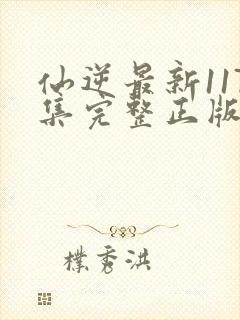 仙逆最新117
集完整正版
樸秀洪